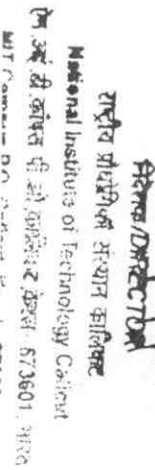 निदेशक/DIRECTOR
राष्ट्रीय प्रौद्योगिकी संस्थान कालिकट
National Institute of Technology Calicut
एन.आई.टी. कैंपस पी.ओ. कालिकट, केरल - 673601, भारत
NIT Campus P.O.